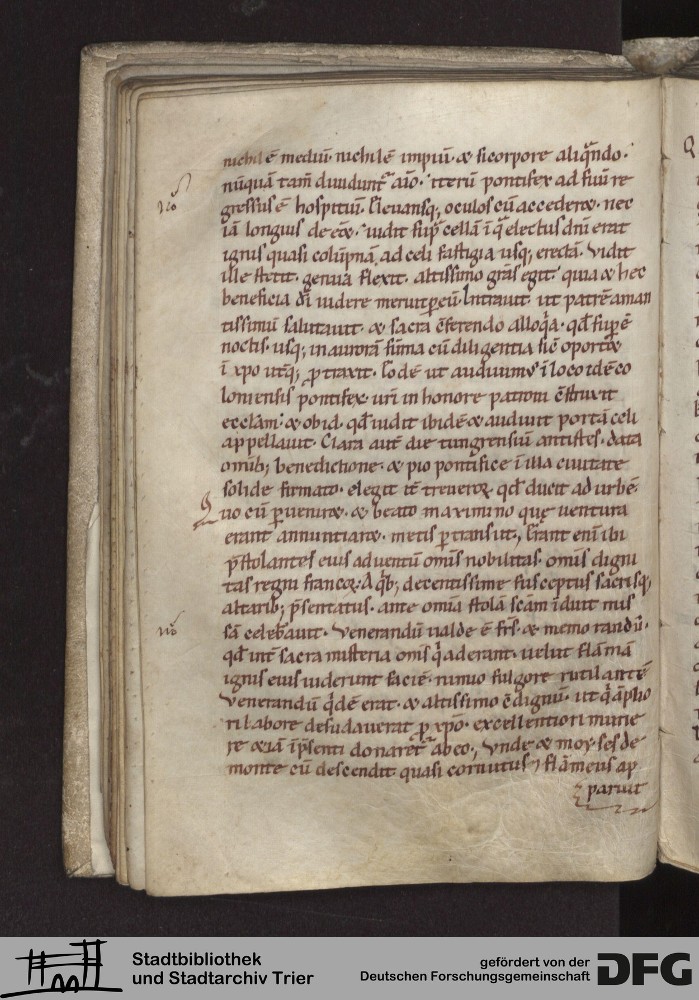 nichil ē mediū· nichil ē impiū· & si corpore aliqando·
nūquā tam̄ diuidunt̄ aīo· iterū pontifex ad suū re
gressus ē hospitiū· Eleuansq; oculos cū accederet· nec
iā longius deēēt· uidit sup̄ cellā ī q̄ electus dn̄i erat
ignis quasi colūpnā ad celi fastigia usq; erectā· Vidit
ille stetit· genua flexit· altissimo grās egit· quia & hec
beneficia dī uidere meruit p̄ eū· Intrauit ut patrē aman
tissimū salutauit· & sacra cōferendo alloq̄a· qd̄ sup̄ē
noctis· usq; in aurorā sūma cū diligentia sic̄ oportet
ī xpo utq; p̄traxit· Eodē ut audiuim᷒ ī loco idē co
loniensis pontifex uri in honore patroni cōstruxit
ecclam̄· & ob id· qd̄ uidit ibidē & audiuit portā celi
appellauit· Clara autē die tungrensiū antistes· data
omīb; benedictione· & pio pontifice ī illa ciuitate
solide firmato· elegit itē treueroꝝ· qd̄ ducit ad urbē·
Quo cū p̄uenir&· & beato maximino quę uentura
erant annuntiar&· metis p̄transiit· Erant enī ibi
p̄stolantes eius aduentū omīs nobilitas· omīs digni
tas regni francoꝝ· A qb; decentissime susceptus sacrisq;
altarib; p̄sentatus· ante omīa stolā scām īduit mis
sā celebrauit· Venerandū ualde ē frs̄· & memorandū·
qd̄ int̄ sacra misteria om̄s q̄ aderant· uelut flāmā
ignis eius uiderunt faciē· nimio fulgore rutilantē
Venerandū q̄dē erat· & altissimo cōdignū· ut q̄ aplico
ri labore desudauerat p̄ xpo· excellentiori mune
re etiā ī p̄senti donaret̄ ab eo· Vnde & moyses de
monte cū descendit quasi cornutus & flāmeus ap
paruit
Stadtbibliothek
und Stadtarchiv Trier
gefördert von der
Deutschen Forschungsgemeinschaft
DFG